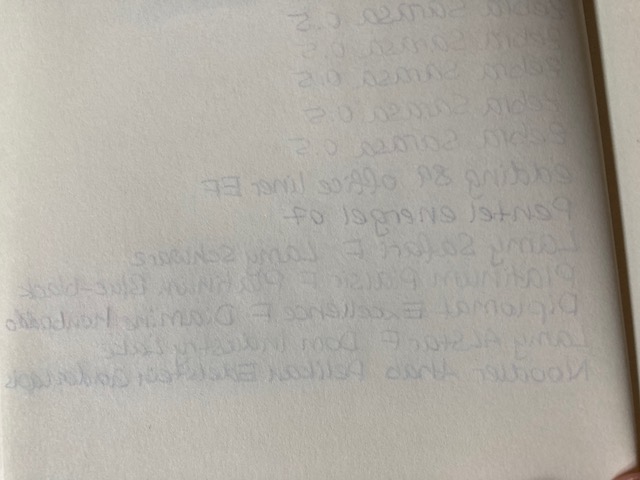 Zebra Sarasa 0.5
Zebra Sarasa 0.5
Zebra Sarasa 0.5
Zebra Sarasa 0.5
Zebra Sarasa 0.5
edding 89 office liner EF
Pentel energel 07
Lamy Safari F Lamy Schwarz
Platinum Plaisir F Platinum Blue-black
Diplomat Excellence F Diamine
Lamy Al Star F
Noodler Ahab Pelikan Edelstein